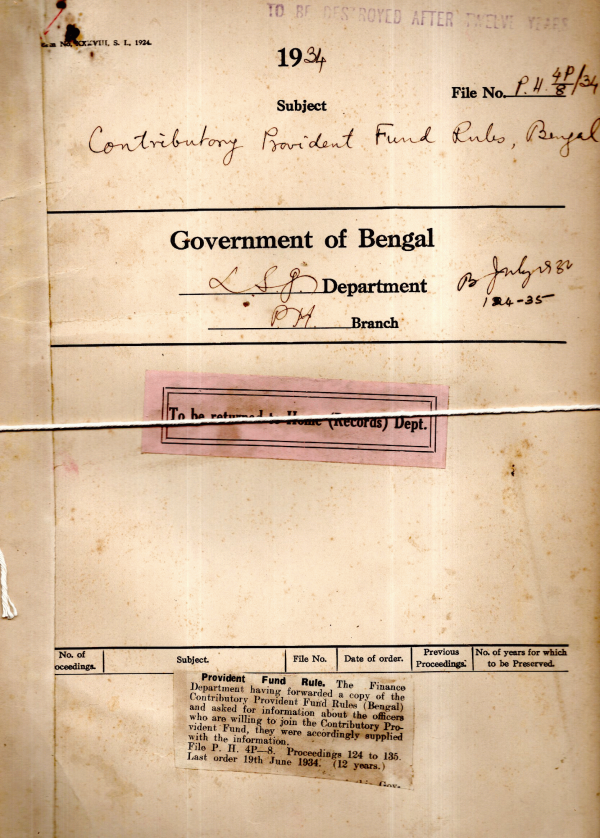 TO BE DESTROYED AFTER TWELVE YEARS
No. XXXVIII, S. I., 1924.
1934
File No. P. H. 4P/8/34
Subject
Contributory Provident Fund Rules, Bengal
Government of Bengal
L. S. G. Department
B July 1934
124-35
P H. Branch
To be returned to Home (Records) Dept.
No. of Proceedings. Subject. File No. Date of order. Previous Proceedings. No. of years for which to be Preserved.
Provident Fund Rule. The Finance
Department having forwarded a copy of the
Contributory Provident Fund Rules (Bengal)
and asked for information about the officers
who are willing to join the Contributory Pro-
vident Fund, they were accordingly supplied
with the information.
File P. H. 4P—8. Proceedings 124 to 135.
Last order 19th June 1934. (12 years.)